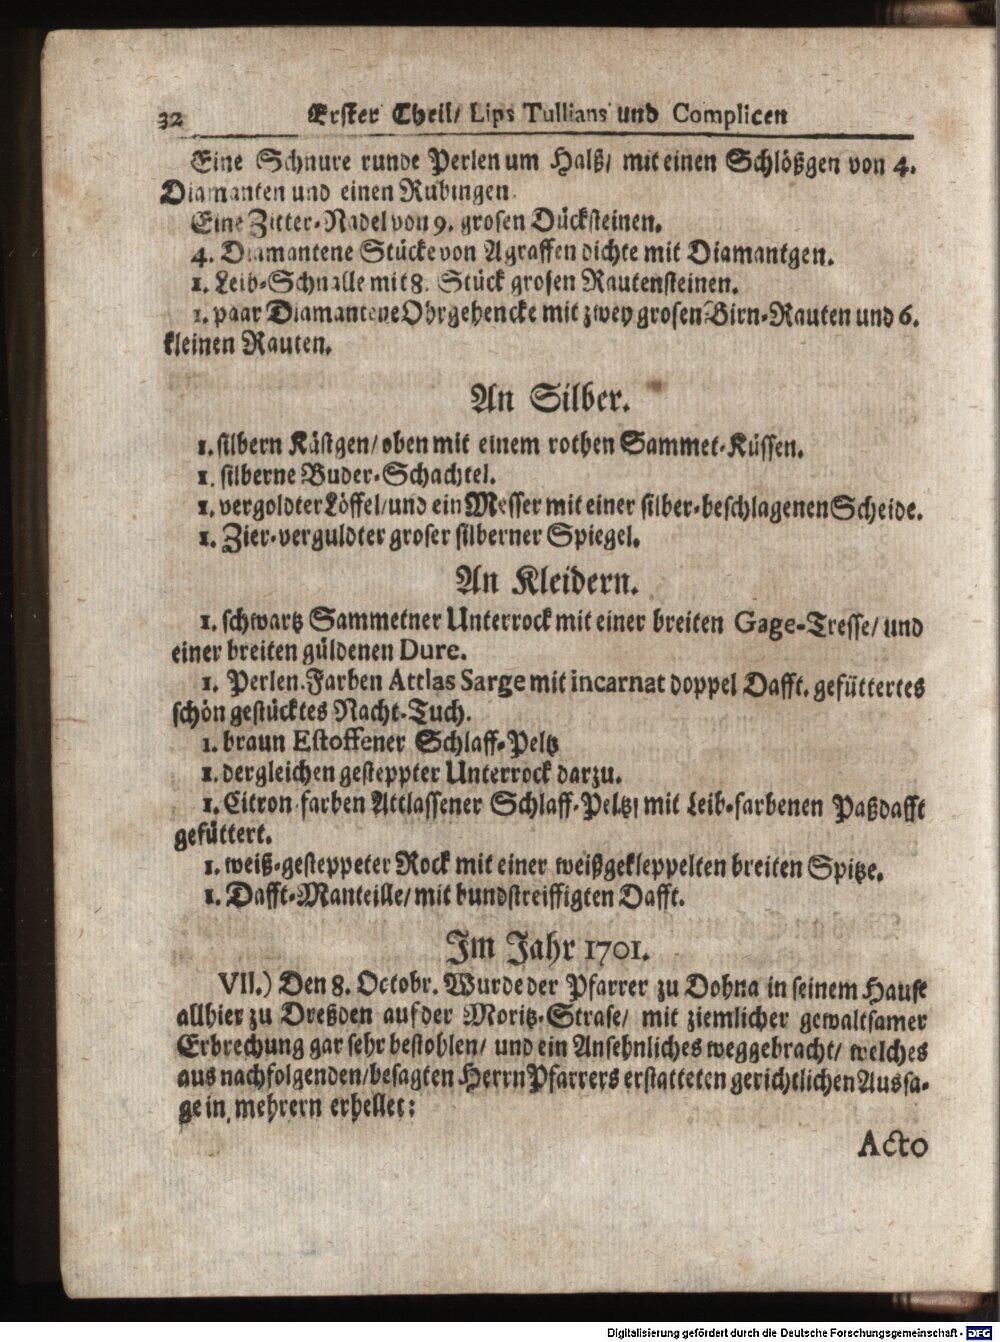 32 Erster Theil/ Lips Tullians und Complicen
Eine Schnure runde Perlen um Halß/ mit einen Schlößgen von 4.
Diamanten und einen Rubingen.
Eine Zitter-Nadel von 9. grosen Dücksteinen.
4. Diamantene Stücke von Agraffen dichte mit Diamantgen.
1. Leib-Schnalle mit 8. Stück grosen Rautensteinen.
1. paar Diamantene Ohrgehencke mit zwey grosen Birn-Rauten und 6.
kleinen Rauten.
An Silber.
1. silbern Kästgen/ oben mit einem rothen Sammet-Küssen.
1. silberne Buder-Schachtel.
1. vergoldter Löffel/ und ein Messer mit einer silber-beschlagenen Scheide.
1. Zier-verguldter groser silberner Spiegel.
An Kleidern.
1. schwartz Sammetner Unterrock mit einer breiten Gage-Tresse/ und
einer breiten güldenen Dure.
1. Perlen-Farben Attlas Sarge mit incarnat doppel Dafft. gefüttertes
schön gestücktes Nacht-Tuch.
1. braun Estoffener Schlaff-Peltz
1. dergleichen gesteppter Unterrock darzu.
1. Citron-farben Attlassener Schlaff-Peltz/ mit Leib-farbenen Paßdafft
gefüttert.
1. weiß-gesteppeter Rock mit einer weißgekleppelten breiten Spitze.
1. Dafft-Manteille/ mit bundstreiffigten Dafft.
Im Jahr 1701.
VII.) Den 8. Octobr. Wurde der Pfarrer zu Dohna in seinem Hause
allhier zu Dreßden auf der Moritz-Strase/ mit ziemlicher gewaltsamer
Erbrechung gar sehr bestohlen/ und ein Ansehnliches weggebracht/ welches
aus nachfolgenden/ besagten Herrn Pfarrers erstatteten gerichtlichen Aussa-
ge in mehrern erhellet:
Acto
Digitalisierung gefördert durch die Deutsche Forschungsgemeinschaft - DFG